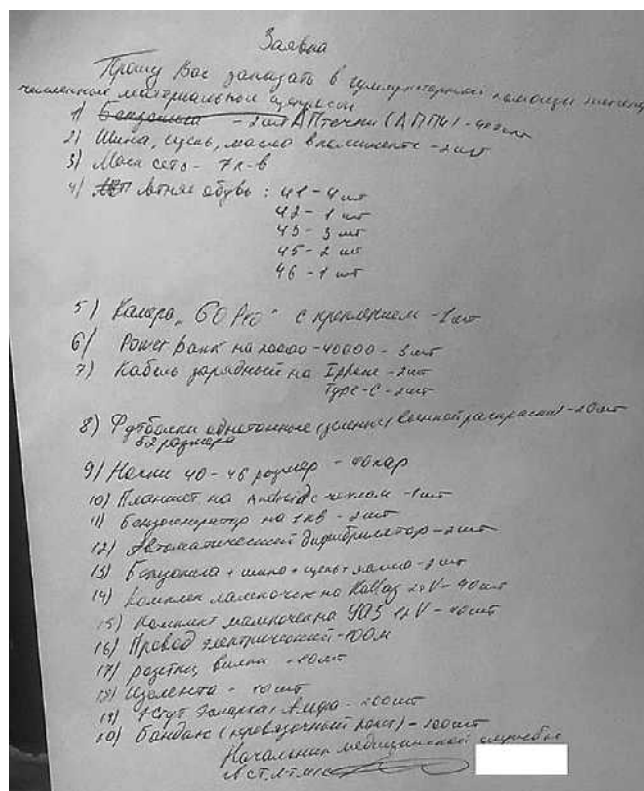 Заявка
Прошу Вас заказать в гуманитарной помощи
материальные
1) Бензопила - 2шт Аптечки (АППИ) - 40шт
2) Шина, цепь, масло в комплекте - 2шт
3) Маск сеть - 7 к-в
4) Летняя обувь : 41 - 4 шт
42 - 1 шт
43 - 3 шт
45 - 2 шт
46 - 1 шт
5) Камера „GO Pro" с креплением - 1шт
6) Power Bank на 20000 - 40000 - 3 шт
7) Кабель зарядный на Iphone - 2шт
Type-C - 2шт
8) Футболки однотонные (зеленые) военной раскраски - 20шт
52 размера
9) Носки 40 - 46 размер - 40 пар
10) Планшет на Android с чехлом - 1шт
11) Бензогенератор на 1кв - 2шт
12) Автоматический дифибрилятор - 2шт
13) Бензопила + шина + цепь + масло - 2 шт
14) Комплек лампочек на КаМаз 24V - 40шт
15) Комплект лампочек на УАЗ 12V - 40шт
16) Провод электрический - 100м
17) розетки вилки - 20шт
18) Изолента - 10шт
19) Жгут Эсмарха, Альфа - 200шт
20) Бандаж (перевязочный пакет) - 100шт
Начальник медицинской службы